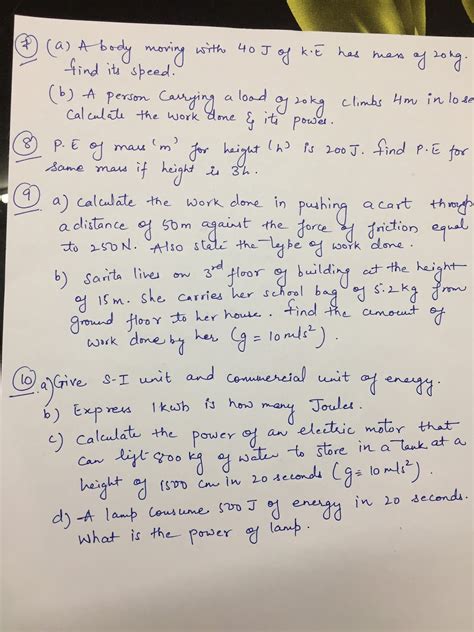 7 (a) A body moving with 40 J of K.E has mass of 20 kg.
find its speed.
(b) A person carrying a load of 20 kg climbs 4m in 10 se
Calculate the work done & its power.
8 P.E of mass 'm' for height (h) is 200 J. find P.E for
same mass if height is 3h.
9 a) Calculate the work done in pushing a cart through
a distance of 50m against the force of friction equal
to 250 N. Also state the type of work done.
b) Sarita lives on 3rd floor of building at the height
of 15 m. She carries her school bag of 5.2 kg from
ground floor to her house. find the amount of
work done by her (g = 10 m/s²).
10 a) Give S-I unit and commercial unit of energy.
b) Express 1 kwh is how many Joules.
c) Calculate the power of an electric motor that
can lift 800 kg of water to store in a tank at a
height of 1500 cm in 20 seconds (g = 10 m/s²).
d) A lamp consume 500 J of energy in 20 seconds.
What is the power of lamp.